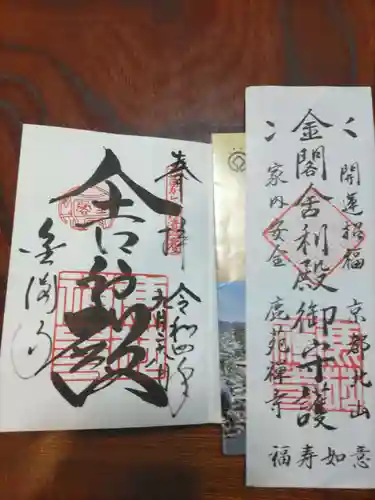 奉拝
令和四年
九月六日
舎利殿
金閣寺
開運招福 京都北山
金閣舎利殿御守護
家内安全 鹿苑禅寺
如意
福寿